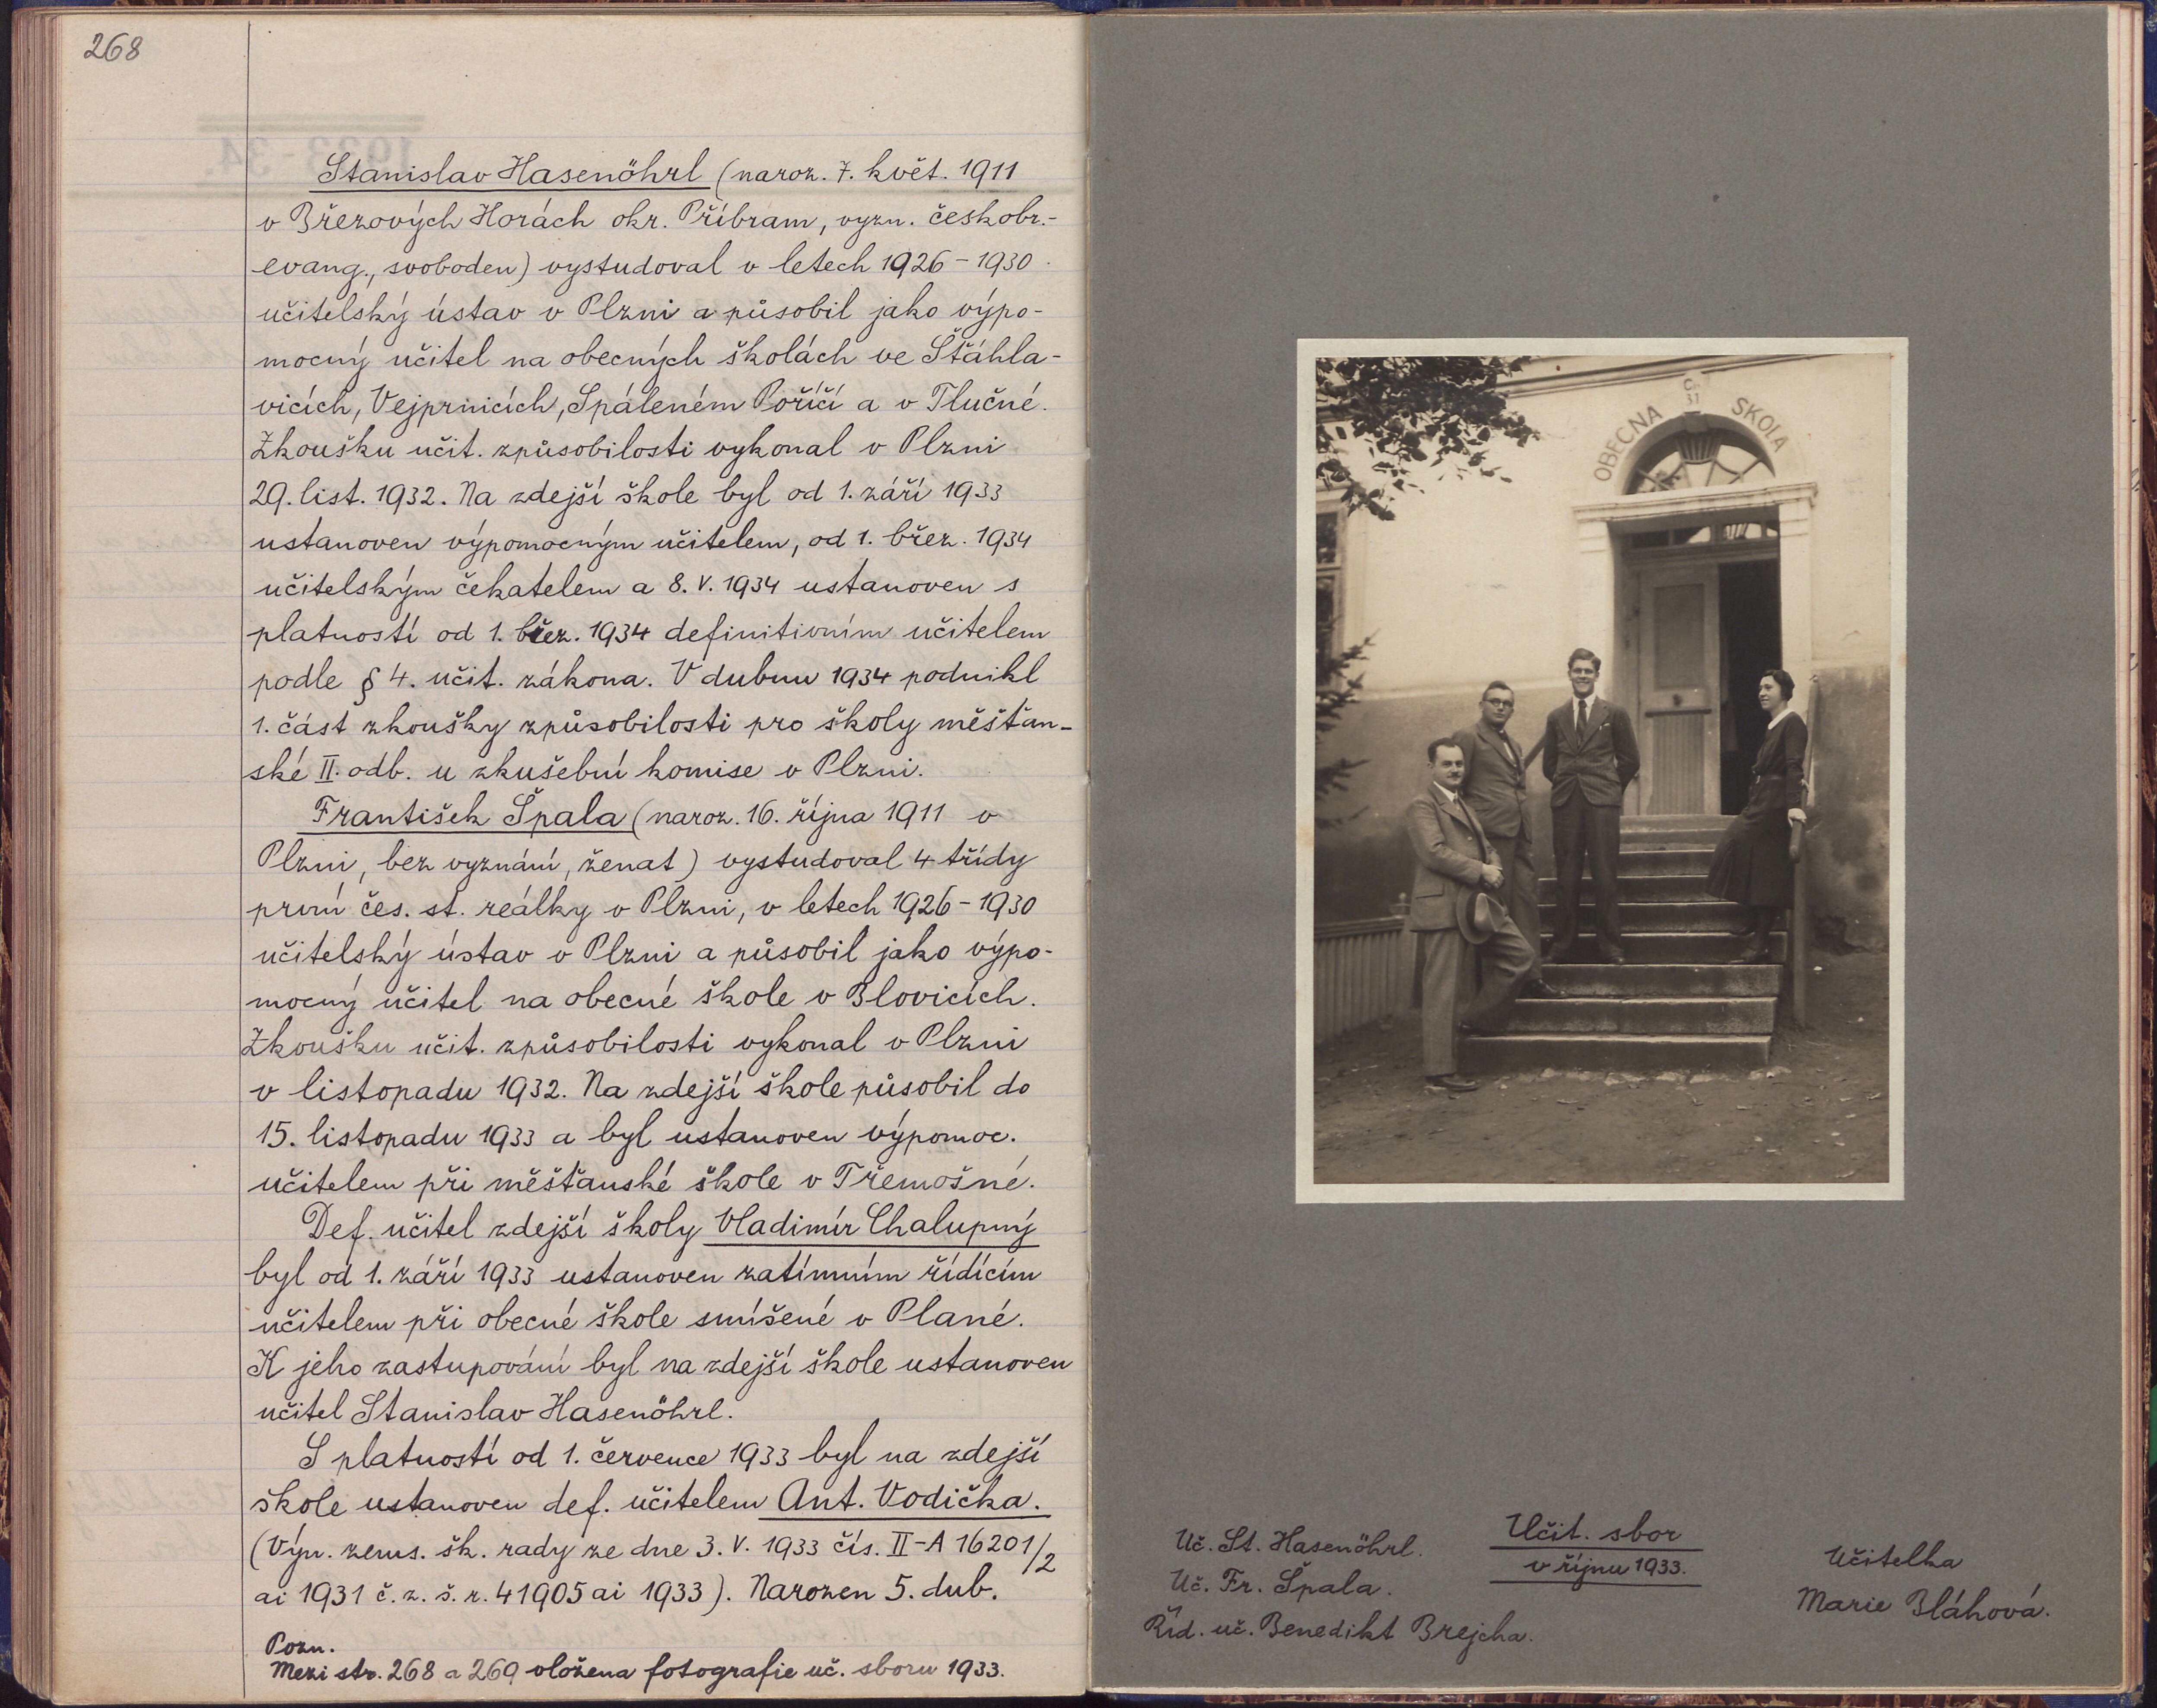 268
Stanislav Hasenöhrl (naroz. 7. květ. 1911
v Březových Horách okr. Příbram, vyzn. českobr.-
evang., svoboden) vystudoval v letech 1926-1930
učitelský ústav v Plzni a působil jako výpo-
mocný učitel na obecných školách ve Šťáhla-
vicích, Vejprnicích, Spáleném Poříčí a v Tlučné.
Zkoušku učit. způsobilosti vykonal v Plzni
29. list. 1932. Na zdejší škole byl od 1. září 1933
ustanoven výpomocným učitelem, od 1. břez. 1934
učitelským čekatelem a 8. V. 1934 ustanoven s
platností od 1. břez. 1934 definitivním učitelem
podle § 4. učit. zákona. V dubnu 1934 podnikl
1. část zkoušky způsobilosti pro školy měšťan-
ské II. odb. u zkušební komise v Plzni.
František Špala (naroz. 16. října 1911 v
Plzni, bez vyznání, ženat) vystudoval 4 třídy
první čes. st. reálky v Plzni, v letech 1926-1930
učitelský ústav v Plzni a působil jako výpo-
mocný učitel na obecné škole v Blovicích.
Zkoušku učit. způsobilosti vykonal v Plzni
v listopadu 1932. Na zdejší škole působil do
15. listopadu 1933 a byl ustanoven výpomoc.
učitelem při měšťanské škole v Třemošné.
Def. učitel zdejší školy Vladimír Chalupný
byl od 1. září 1933 ustanoven zatímním řídícím
učitelem při obecné škole smíšené v Plané.
K jeho zastupování byl na zdejší škole ustanoven
učitel Stanislav Hasenöhrl.
S platností od 1. července 1933 byl na zdejší
škole ustanoven def. učitelem Ant. Vodička.
(Výn. zems. šk. rady ze dne 3. V. 1933 čís. II-A 16201/2
ai 1931 č. z. š. r. 41905 ai 1933). Narozen 5. dub.
Pozn.
Mezi str. 268 a 269 vložena fotografie uč. sboru 1933.
OBECNA SKOlA
Uč. St. Hasenöhrl.
Uč. Fr. Špala.
Říd. uč. Benedikt Brejcha.
Učit. sbor
v říjnu 1933.
Učitelka
Marie Bláhová.